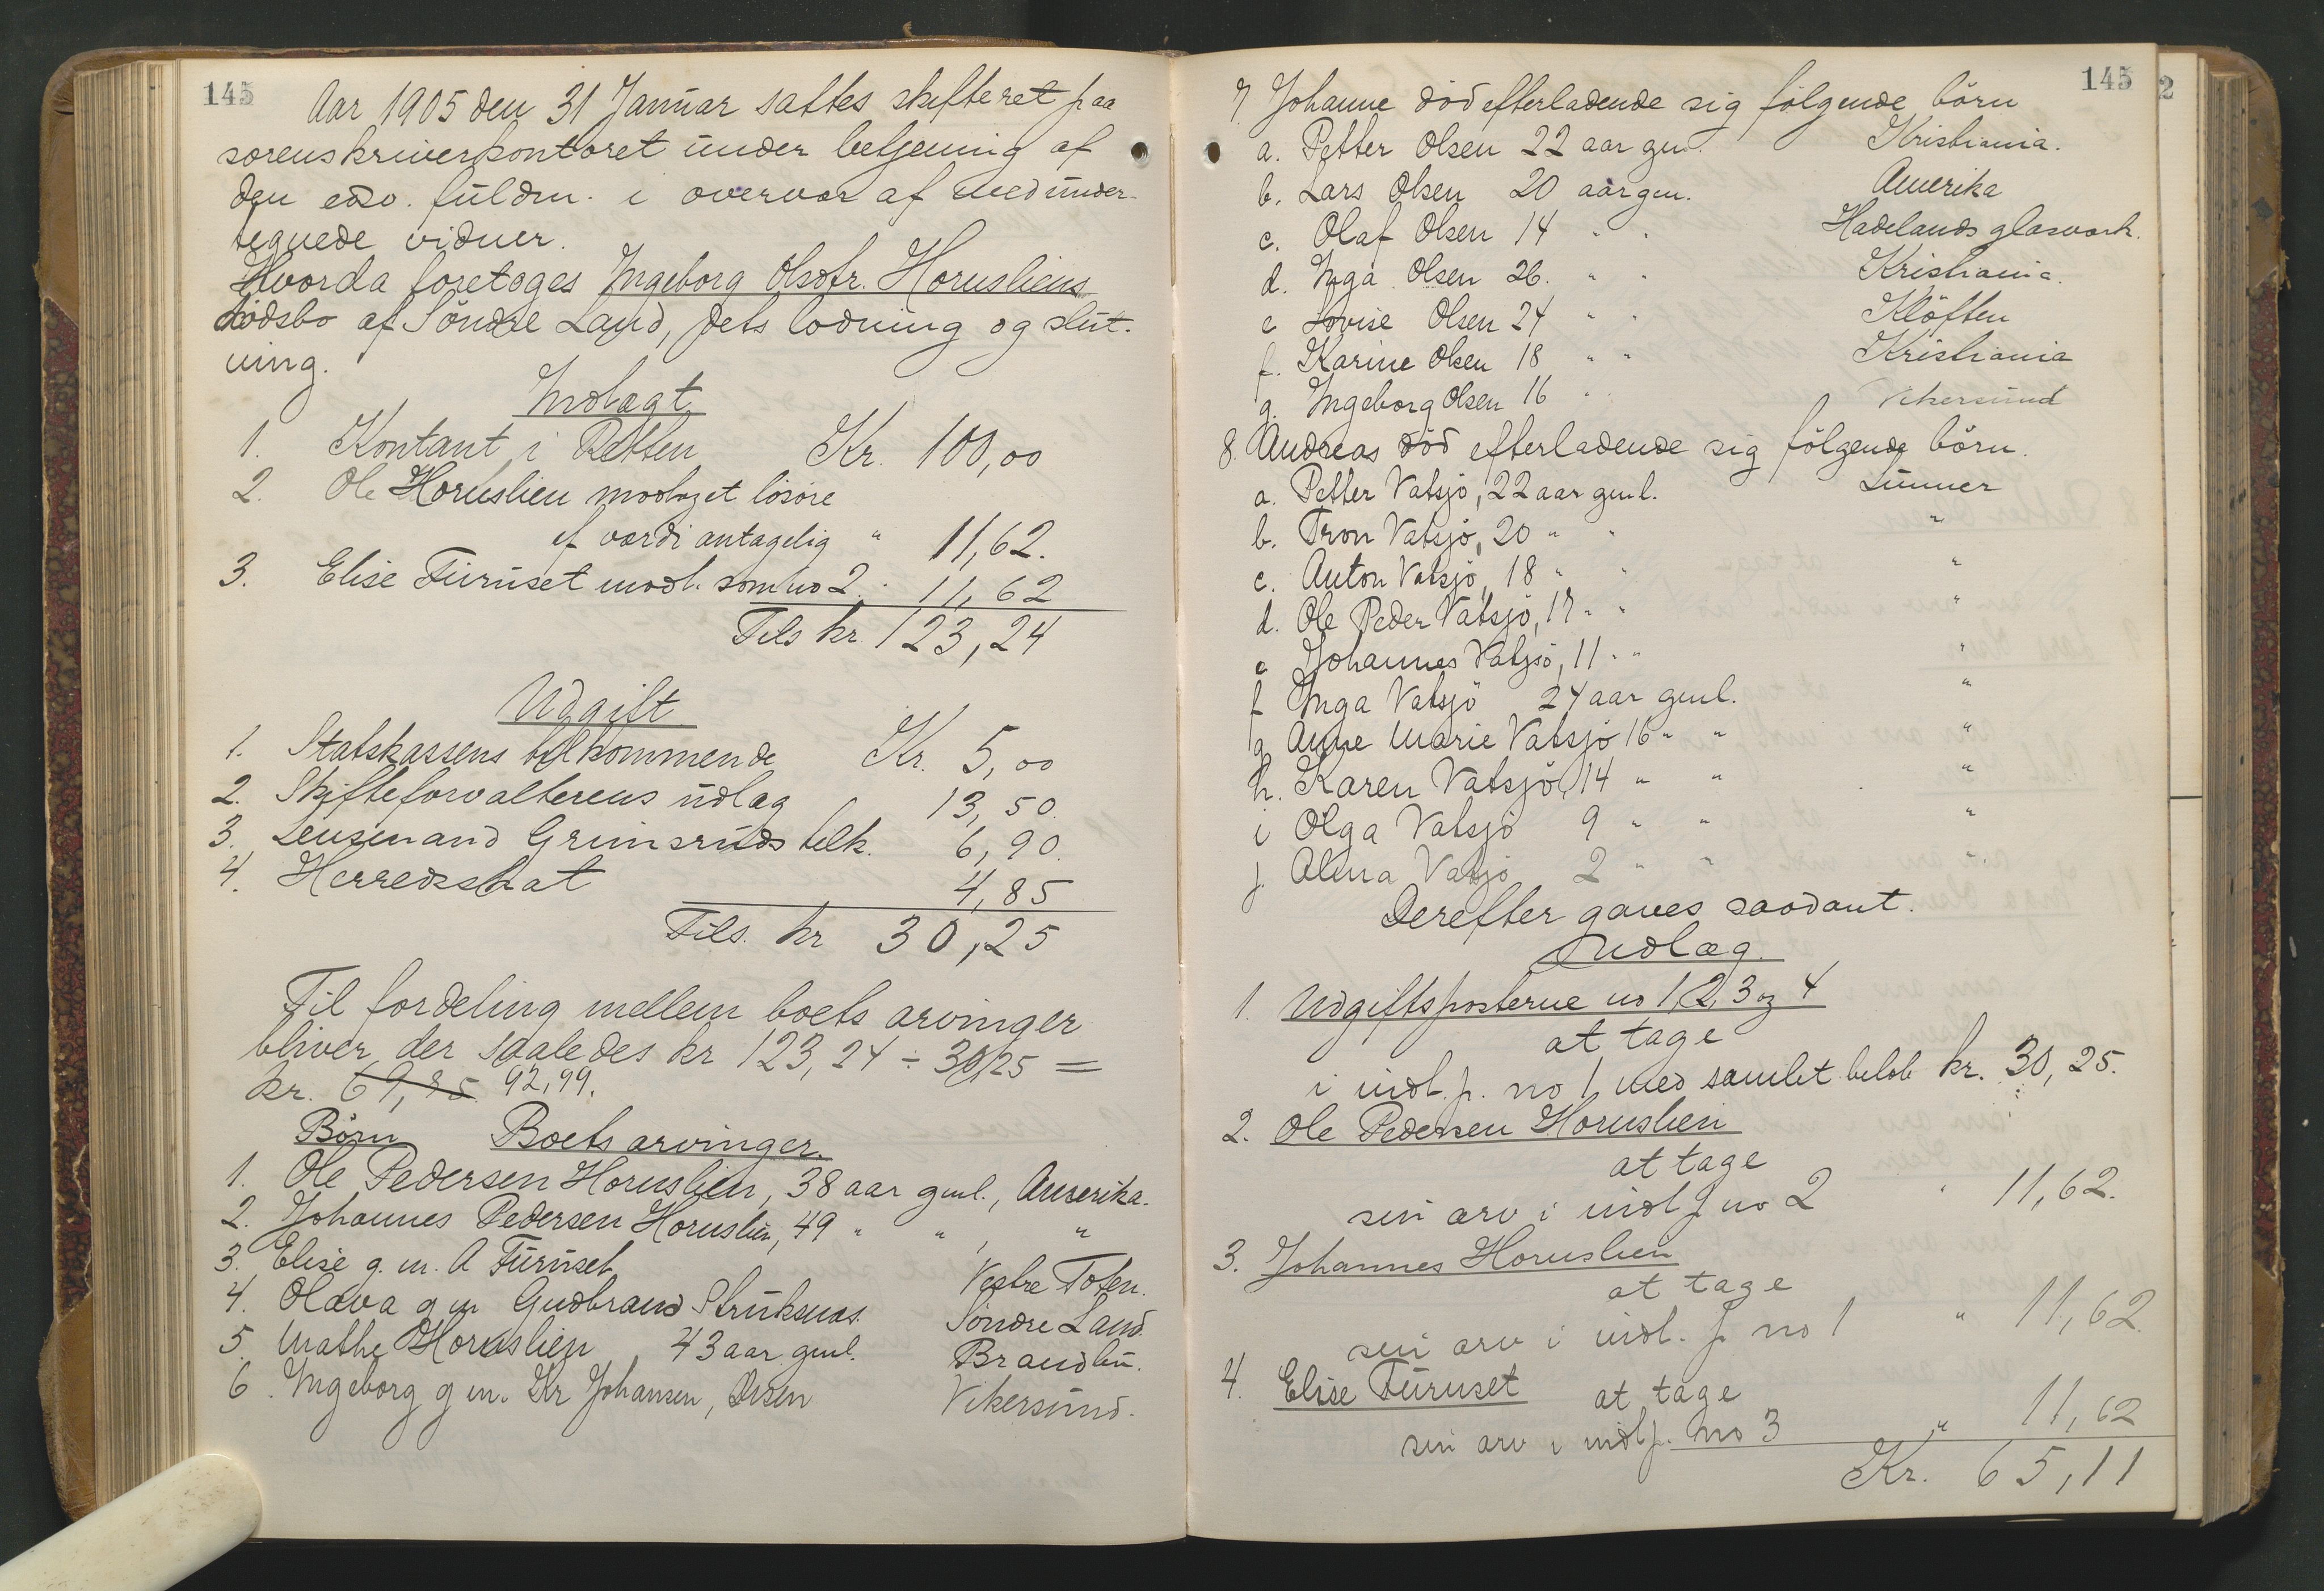 145
Aar 1905 den 31 Januar sattes skifteret paa
sorenskriverkontoret under betjening af
den edso. fuldm. i overvær af medunder-
tegnede vidner.
Hvorda foretoges Ingeborg Olsdtr. Hornsliens
dödsbo af Söndre Land, dets lodning og slut-
ning.
Indtægt
1. Kontant i Retten Kr. 100,00
2. Ole Hornslien modtaget lösöre
af værdi antagelig " 11,62.
3. Elise Furuset modt. som no 2. " 11,62
Tils kr. 123,24
Udgift
1. Statskassens tilkommende Kr. 5,00
2. Skifteforvalterens udlæg 13,50.
3. Lensmand Grimsruds tilk. 6,90.
4. Herredsskat 4,85
Tils. kr 30,25
Til fordeling mellem boets arvinger
bliver der saaledes kr 123,24 ÷ 30,25 =
kr. 69,85 92,99.
Börn Boets arvinger.
1. Ole Pedersen Hornslien, 38 aar gml., Amerika.
2. Johannes Pedersen Hornslien, 49 " " , "
3. Elise g. m. A Furuset Vestre Toten.
4. Olava g m Gudbrand Struksnæs. Söndre Land.
5. Mathe Hornslien 43 aar gml. Brandbu.
6. Ingeborg g m. Kr Johansen, Vikersund.
145
2
7 Johanne död efterladende sig fölgende börn
a. Petter Olsen 22 aar gm. Kristiania.
b. Lars Olsen 20 aar gm. Amerika
c. Olaf Olsen 14 " " Hadelands glasværk.
d. Inga Olsen 26. " " Kristiania.
e Lovise Olsen 24 " " Klöften
f. Karine Olsen 18 " " Kristiania
g. Ingeborg Olsen 16 " Vikersund
8. Andreas död efterladende sig fölgende börn.
a. Petter Vatsjö, 22 aar gml. Lunner
b. Tron Vatsjö, 20 " " "
c. Anton Vatsjö, 18 " " "
d. Ole Peder Vatsjö, 17 " " "
e Johannes Vatsjö, 11 " " "
f Inga Vatsjö 24 aar gml. "
g Anne Marie Vatsjö 16 " " "
h. Karen Vatsjö, 14 " " "
i Olga Vatsjö 9 " " "
j. Alma Vatsjö 2 " " "
Derefter gaves saadant.
Udlæg.
1. Udgiftsposterne no 1, 2, 3 og 4
at tage
i indt. p. no 1 med samlet beløb kr. 30,25.
2. Ole Pedersen Hornslien
at tage
sin arv i indt p no 2 " 11,62.
3. Johannes Hornslien
at tage
sin arv i indt. p no 1 " 11,62.
4. Elise Furuset at tage
sin arv i indt p. no 3 " 11,62
Kr. 65,11